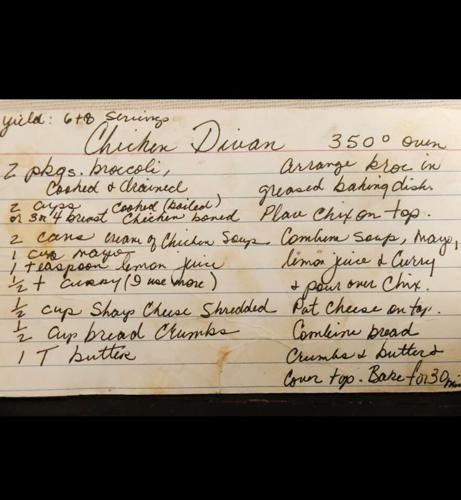 yield: 6+8 Servings
Chicken Divan
350° oven
2 pkgs. broccoli,
Cooked & drained
2 cups Cooked (boiled)
or 3 or 4 breast Chicken boned
2 cans cream of Chicken Soup
1 cup mayo
1 teaspoon lemon juice
½ t curry (I use more)
½ cup Sharp Cheese Shredded
½ cup bread crumbs
1 T butter
Arrange broc in
greased baking dish.
Place chix on top.
Combine Soup, Mayo,
lemon juice & Curry
& pour over Chix.
Pat cheese on top.
Combine bread
Crumbs & butter &
Cover top. Bake for 30 min